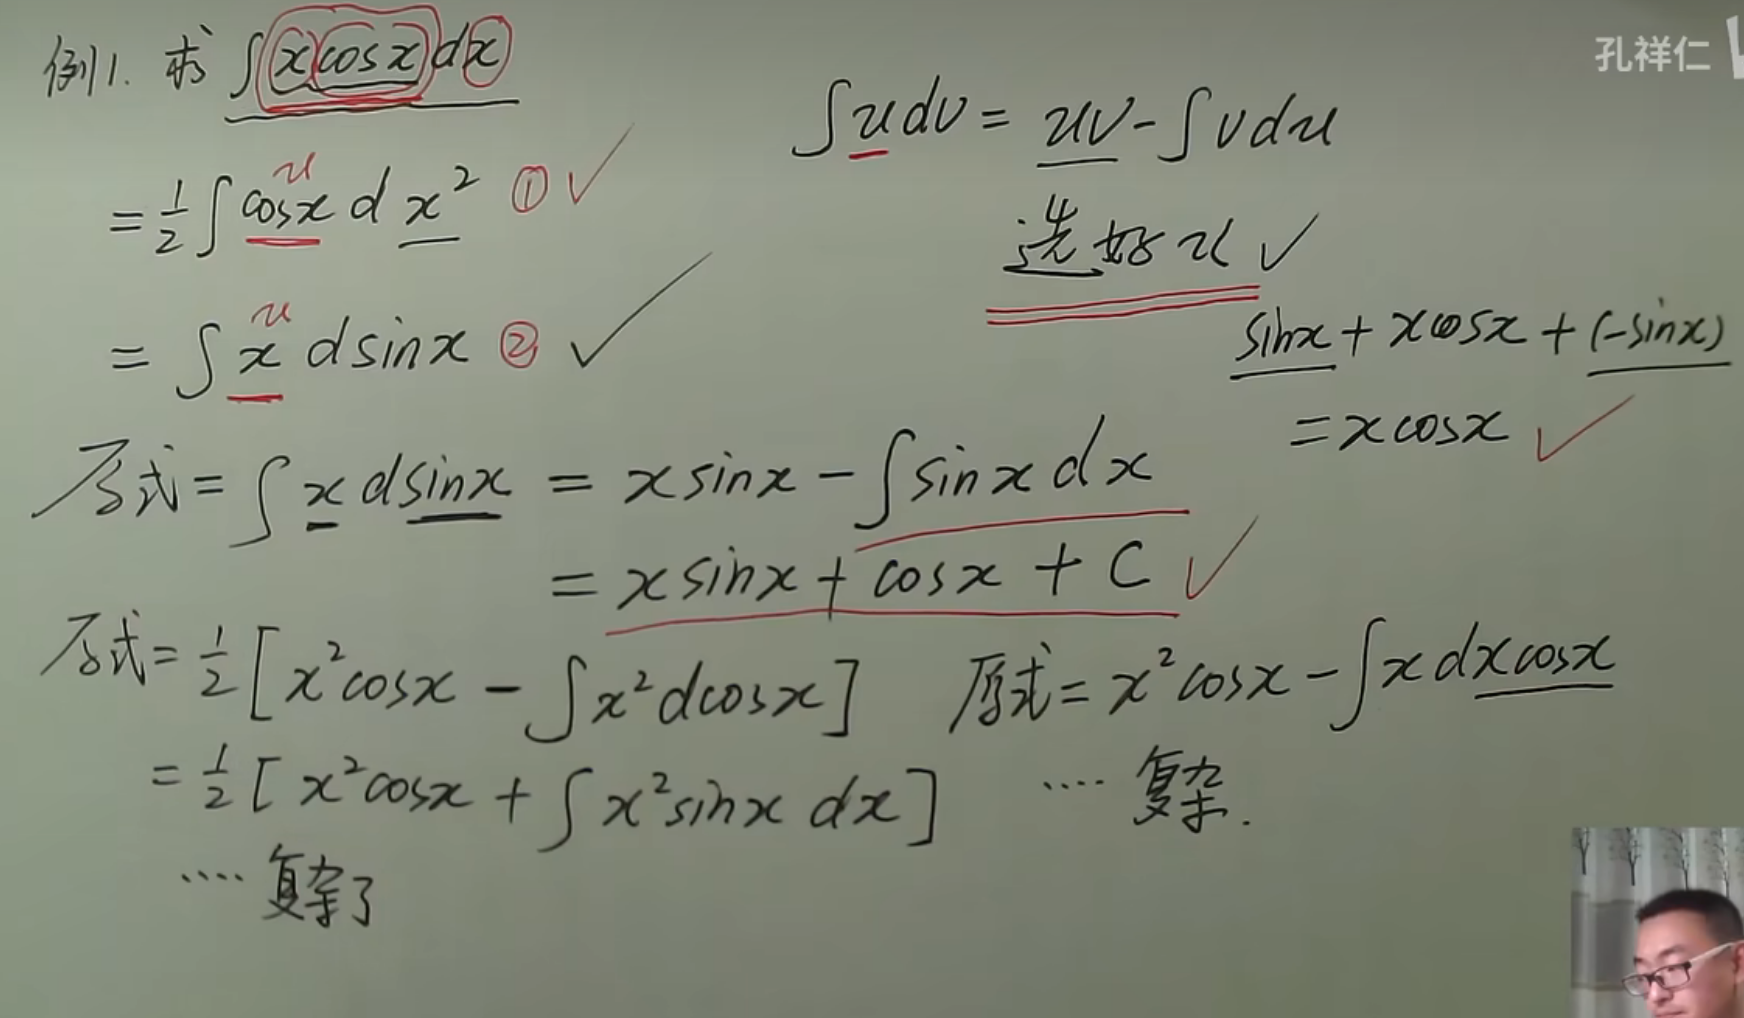 孔祥仁
例1. 求 ∫xcosxdx
∫udv = uv - ∫vdu
u
= 1/2 ∫cosx d x² ① ✓
选好u ✓
u
= ∫x dsinx ② ✓
sinx + xcosx + (-sinx)
= xcosx ✓
原式 = ∫x dsinx = xsinx - ∫sinxdx
= xsinx + cosx + C ✓
原式 = 1/2 [x²cosx - ∫x²dcosx]
= 1/2 [x²cosx + ∫x²sinx dx]
.... 复杂了
原式 = x²cosx - ∫x dxcosx
.... 复杂.